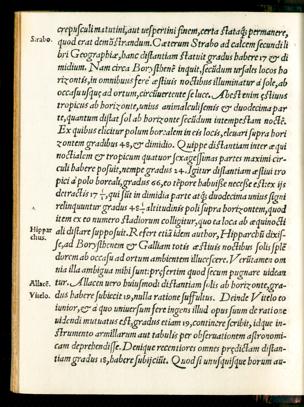 crepusculi matutini, aut uespertini finem, certa stataq́; permanere,
Strabo. quod erat demõstrandum. Cæterum Strabo ad calcem secundi li
bri Geographiæ, hanc distantiam statuit gradus habere 17 & di
midium. Nam circa Borysthenẽ inquit, secũdum ursales locos ho
rizontis, in omnibus ferè æstiuis noctibus illuminatur à sole, ab
occasu usque ad ortum, circũuertente se luce. Abest enim æstiuus
tropicus ab horizonte, unius animalculi semis & duodecima par
te, quantum distat sol ab horizonte secũdum intempestam noctẽ.
Ex quibus elicitur polum borealem in eis locis, eleuari supra hori
zontem gradibus 48, & dimidio. Quippe distantiam inter æqui
noctialem & tropicum quatuor sexagessimas partes maximi cir-
culi habere posuit, nempe gradus 24. Igitur distantiam æstiui tro
pici à polo boreali, gradus 66, eo tẽpore habuisse necesse est: ex ijs
detractis 17 ½, qui sũt in dimidia parte atq́; duodecima unius signi
relinquuntur gradus 48 ½ altitudinis poli supra horizontem, quod
item ex eo numero stadiorum colligitur, quo ea loca ab æquinocti
Hippar ali distare supposuit. Refert etiã idem author, Hipparchũ dixis-
chus. se, ad Borysthenem & Galliam totis æstiuis noctibus solis splẽ
dorem ab occasu ad ortum ambientem illucescere. Verũtamen om
nia illa ambigua mihi sunt: presertim quod secum pugnare uidean
Allacẽ. tur. Allacen uero huiusmodi distantiam solis ab horizonte, gra-
Vitelo. dus habere subiecit 19, nulla ratione suffultus. Deinde Vitelo eo
iunior, & à quo uniuersum fere ingens illud opus suum de ratione
uidendi mutuatus est, gradus etiam 19, continere scribit, idque in-
strumento armillarum aut tabulis per obseruationem astronomi-
cam deprehendisse. Denique recentiores omnes predictam distan-
tiam gradus 18, habere subijciũt. Quod si unusquisque horum au-